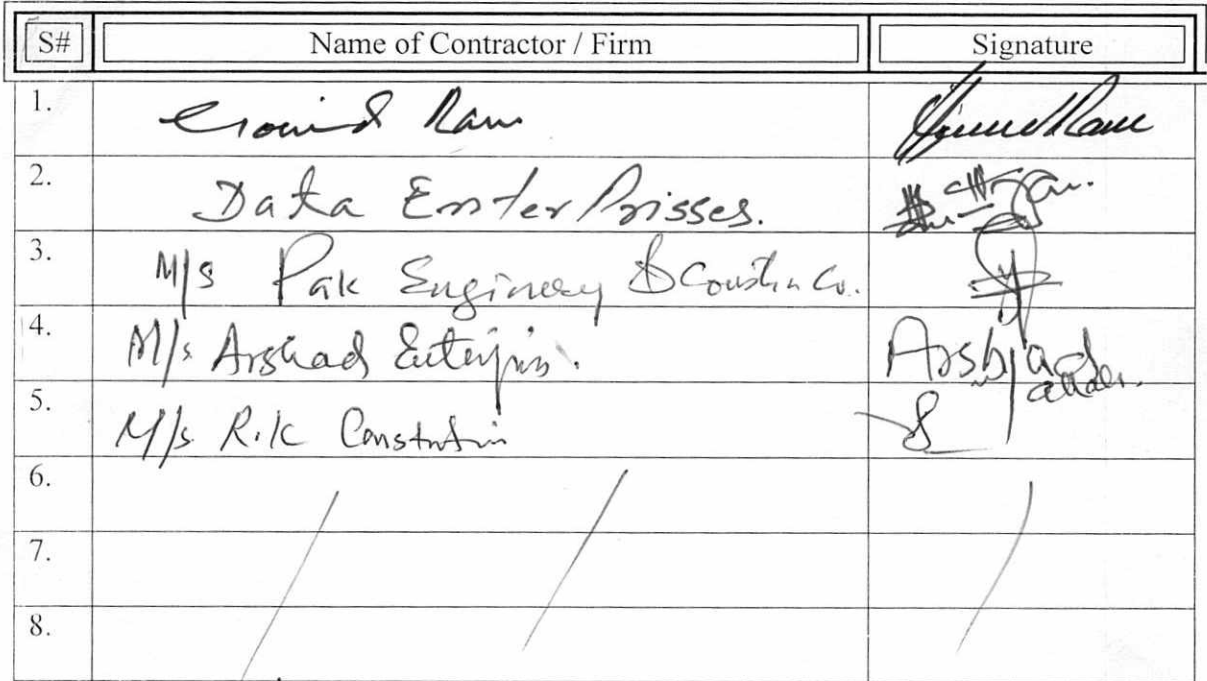 S# Name of Contractor / Firm Signature
1. Govind Ram
2. Data EnterPrisses.
3. M/s Pak Enginerey & Constn Co.
4. M/s Arshad Enterpris. Arshad
5. M/s R.K Constrution
6.
7.
8.